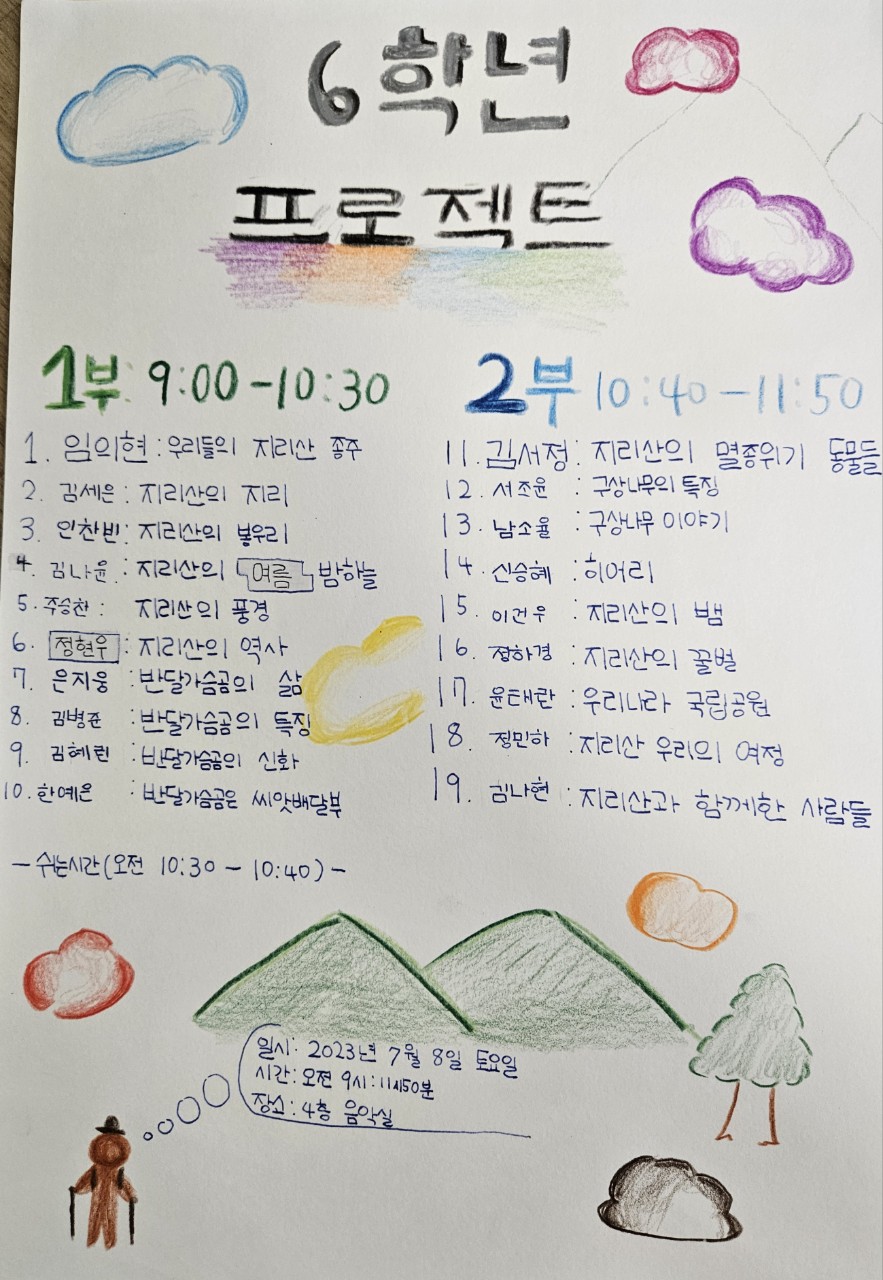 6학년
프로젝트
1부: 9:00-10:30
1. 임의현: 우리들의 지리산 종주
2. 김세은: 지리산의 지리
3. 인찬빈: 지리산의 봉우리
4. 김나윤: 지리산의 여름 밤하늘
5. 주승찬: 지리산의 풍경
6. 정현우: 지리산의 역사
7. 은지웅: 반달가슴곰의 삶
8. 김병준: 반달가슴곰의 특징
9. 김혜린: 반달가슴곰의 신화
10. 한예은: 반달가슴곰은 씨앗배달부
-쉬는시간(오전 10:30 - 10:40)-
2부 10:40-11:50
11. 김서정: 지리산의 멸종위기 동물들
12. 서조윤: 구상나무의 특징
13. 남소율: 구상나무 이야기
14. 신승혜: 히어리
15. 이건우: 지리산의 뱀
16. 정하경: 지리산의 꿀벌
17. 윤태란: 우리나라 국립공원
18. 정민하: 지리산 우리의 여정
19. 김나현: 지리산과 함께한 사람들
일시: 2023년 7월 8일 토요일
시간: 오전 9시:11시50분
장소: 4층 음악실